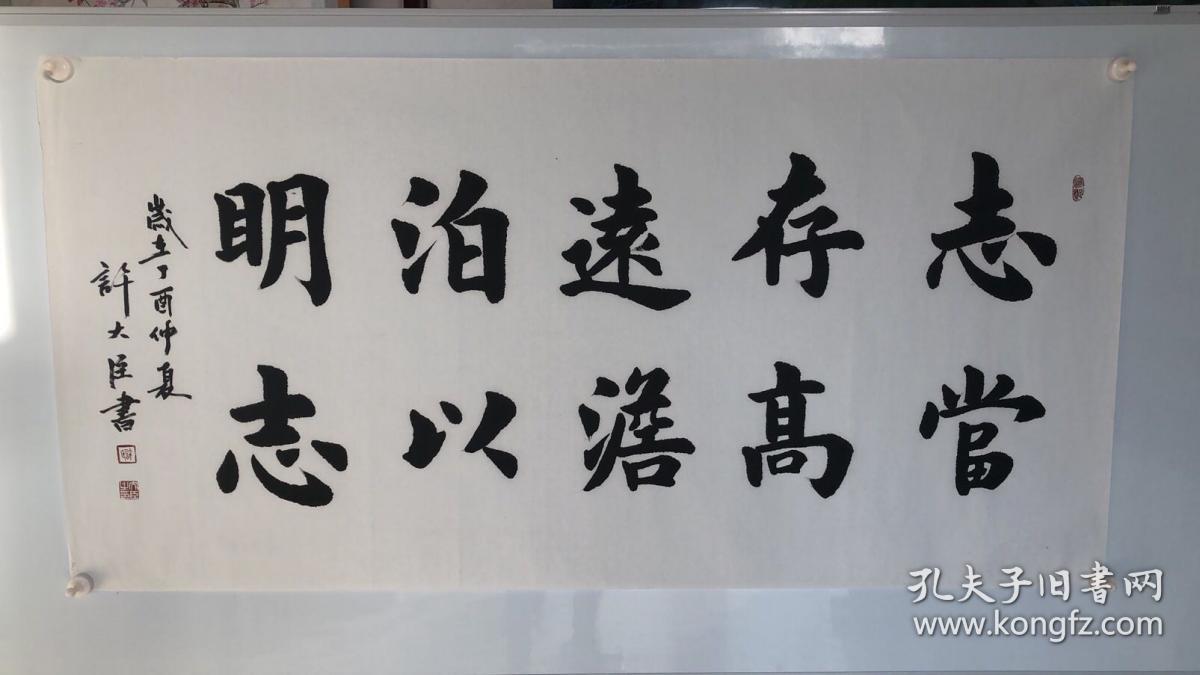 志當
存高
遠澹
泊以
明志
歲在丁酉仲夏
許大臣書
孔夫子旧書网
www.kongfz.com